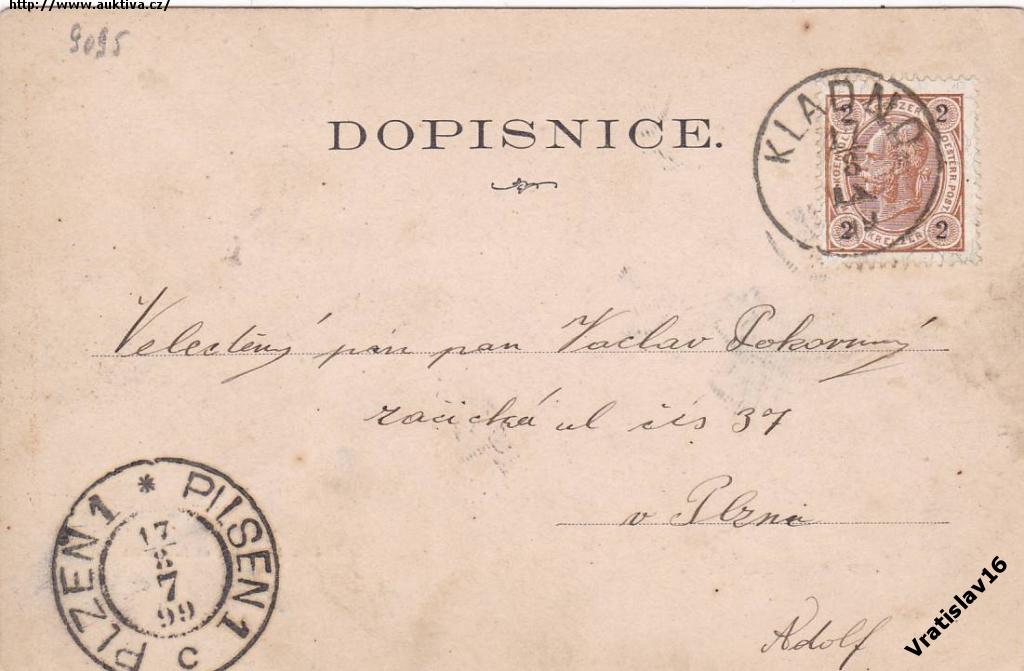 http://www.auktiva.cz/
9095
DOPISNICE.
KLADNO
2 2
KAISERL. KOENIGL. OESTERR. POST
2 KREUZER 2
Velectěný pán pan Vaclav Pokorný
račická ul čís 37
v Plzni
PLZEN 1 * PILSEN 1
17
8
99
C
Adolf
Vratislav16